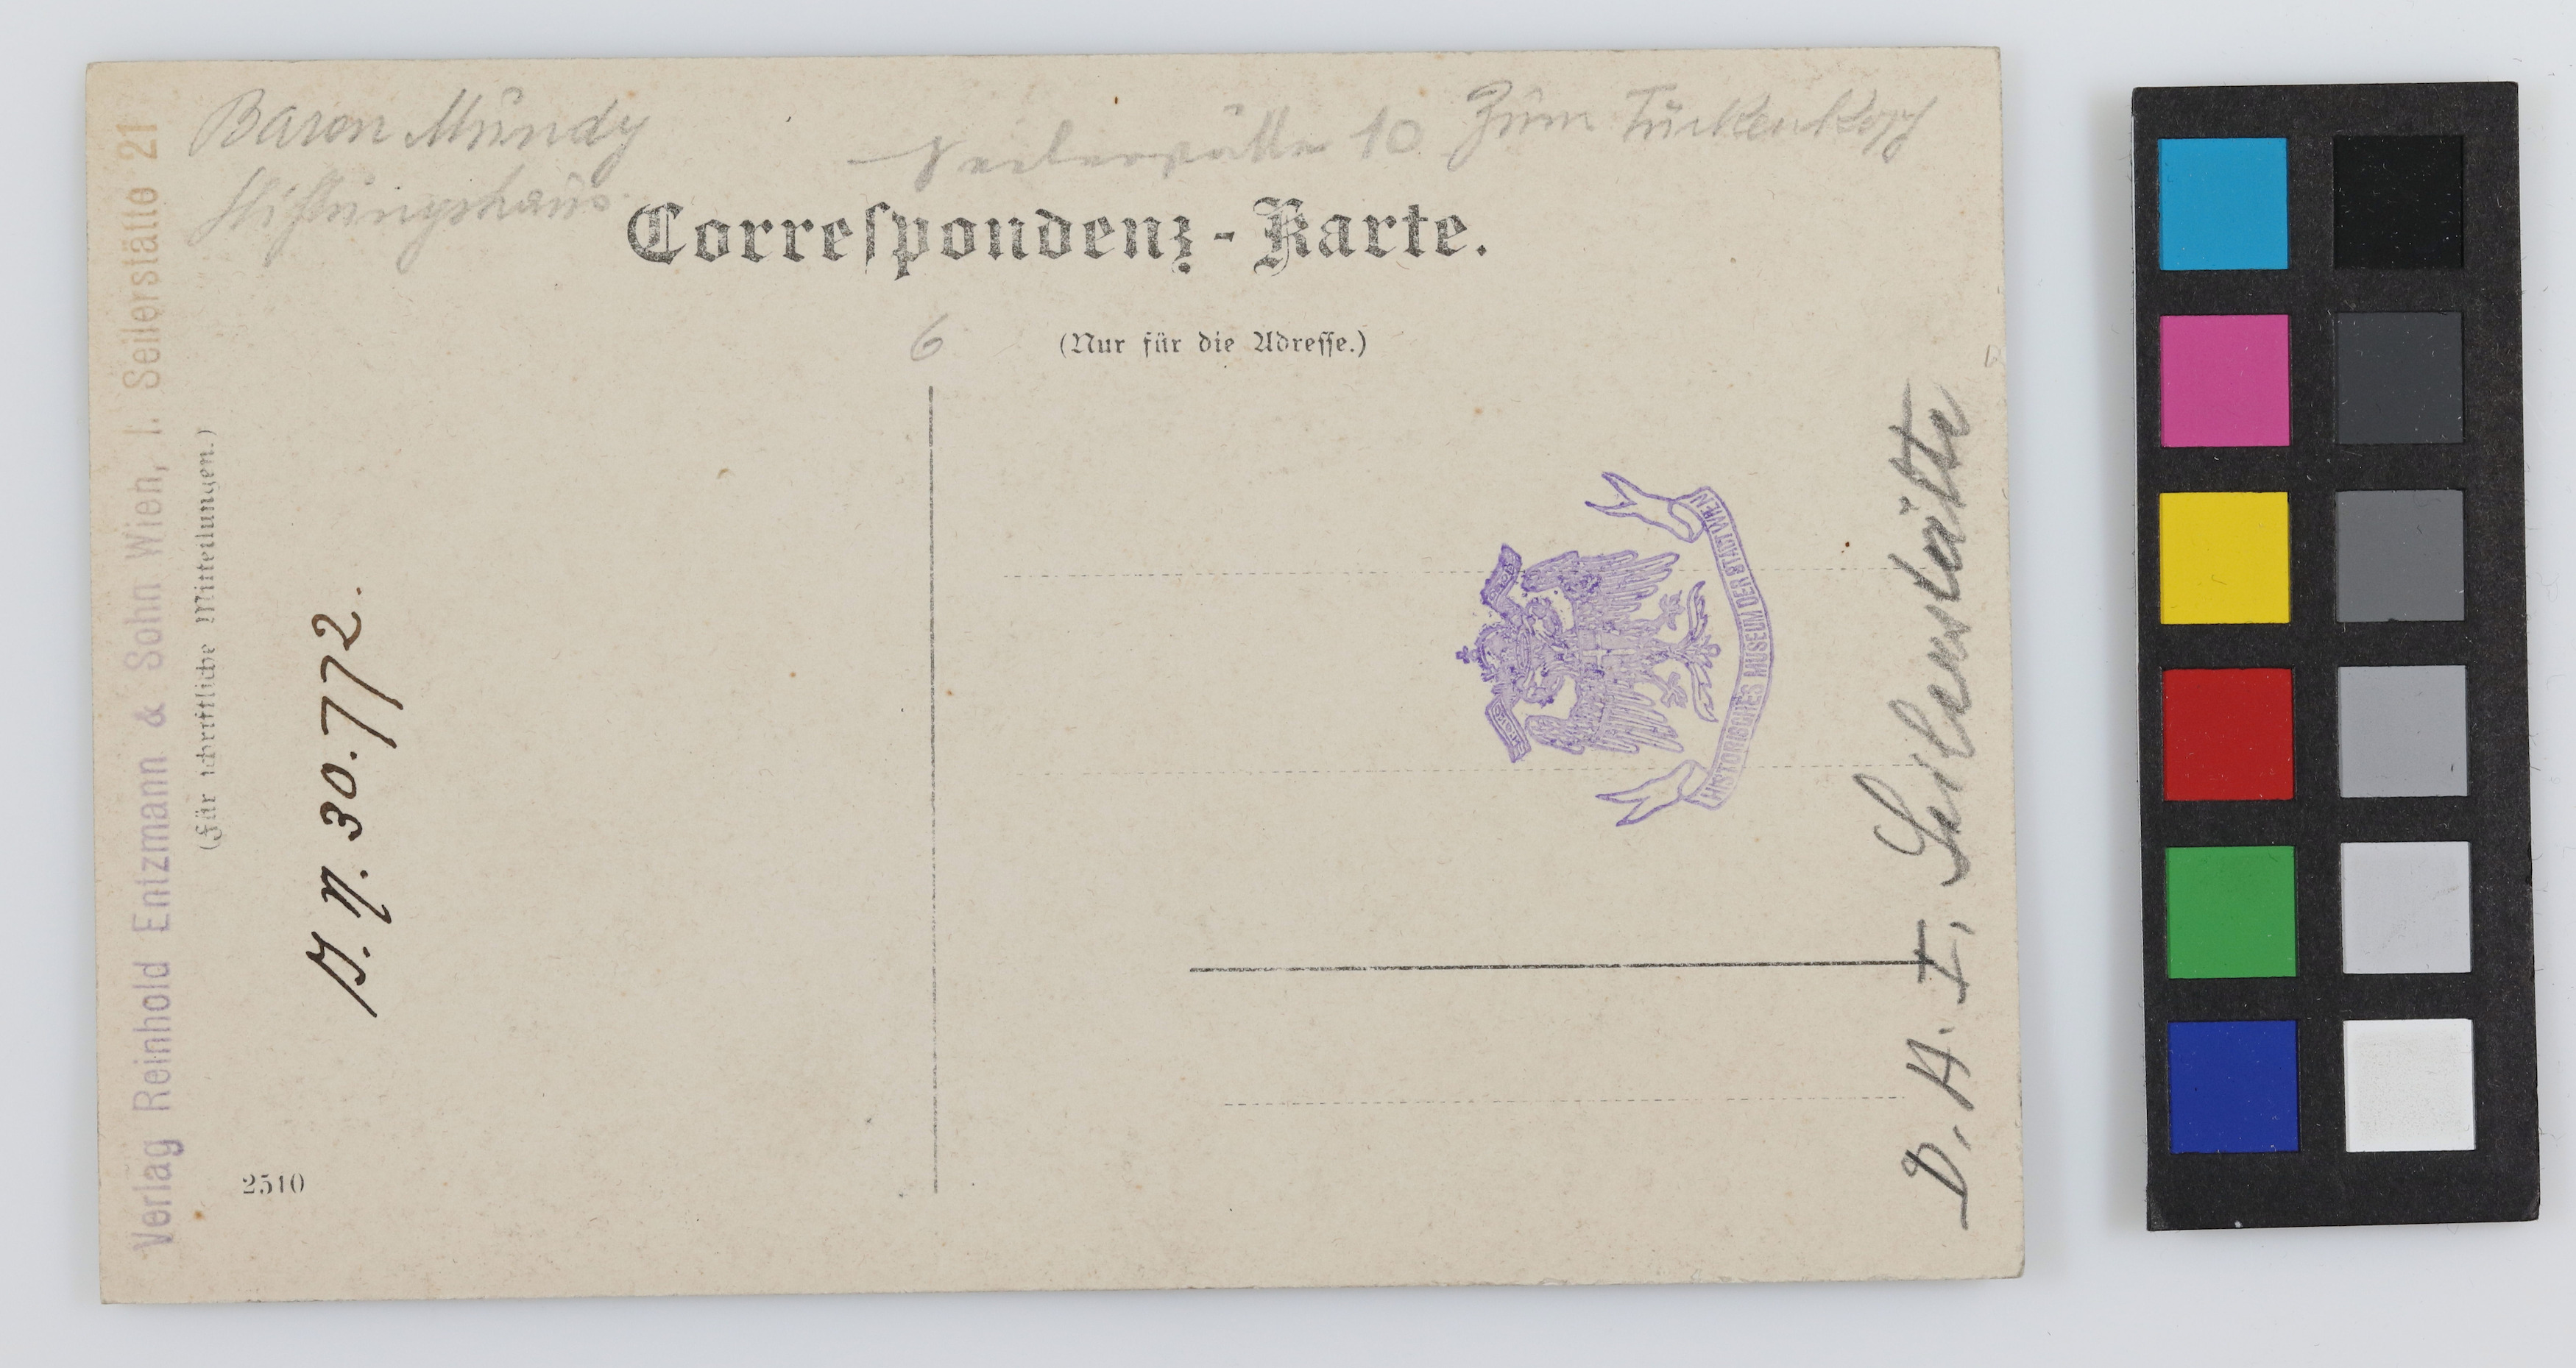 Baron Mundy
Stiftungshaus
Seilerstätte 10 Zum Türkenkopf
Correspondenz-Karte.
6
(Nur für die Adresse.)
Verlag Reinhold Entzmann & Sohn Wien, I. Seilerstätte 21
(Für schriftliche Mitteilungen.)
30.772.
2510
HISTORISCHES MUSEUM DER STADT WIEN
D. H. I, Seilerstätte